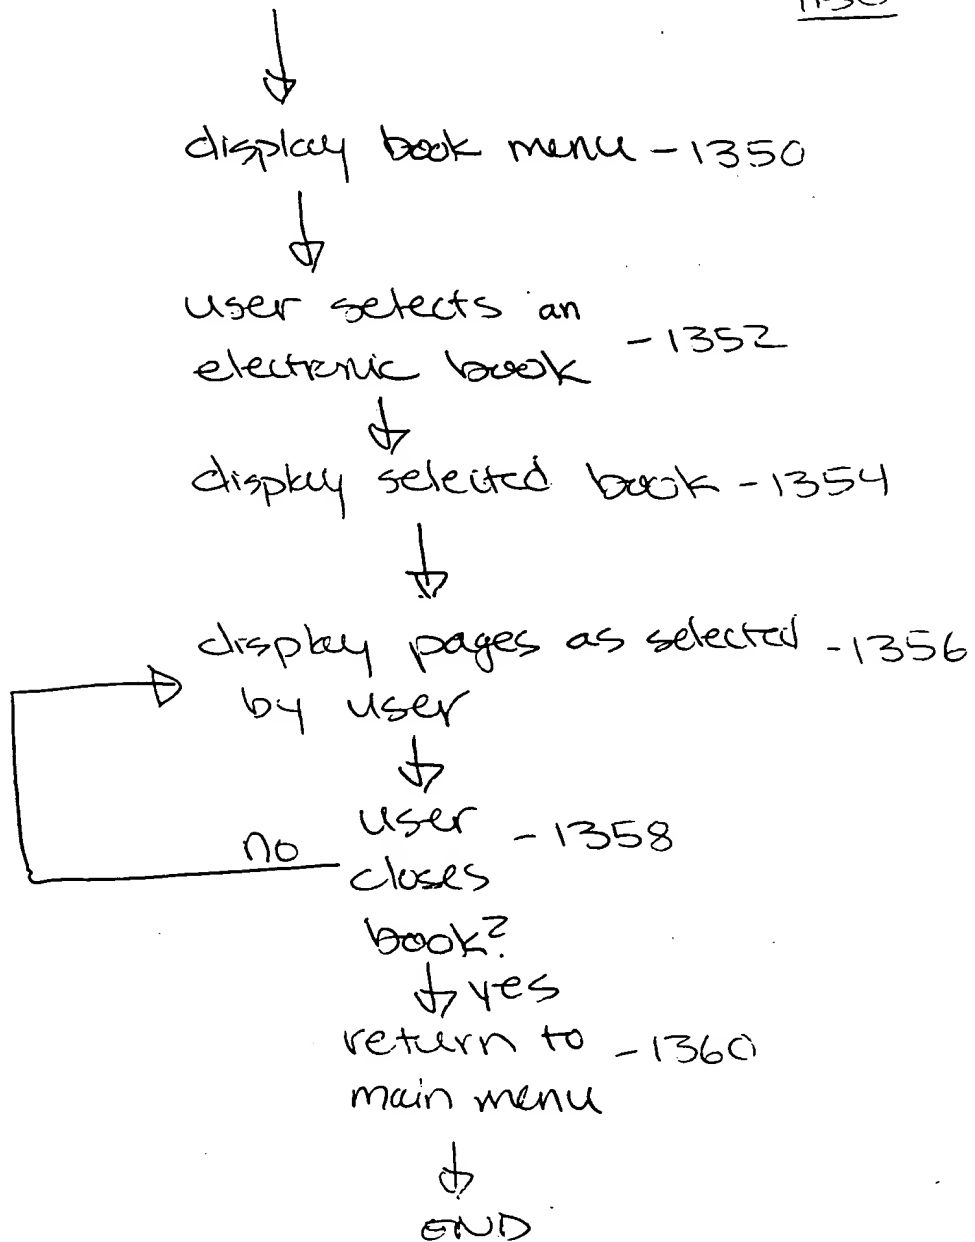 display book menu - 1350
user selects an
electronic book - 1352
display selected book - 1354
display pages as selected - 1356
by user
user - 1358
no
closes
book?
yes
return to - 1360
main menu
END